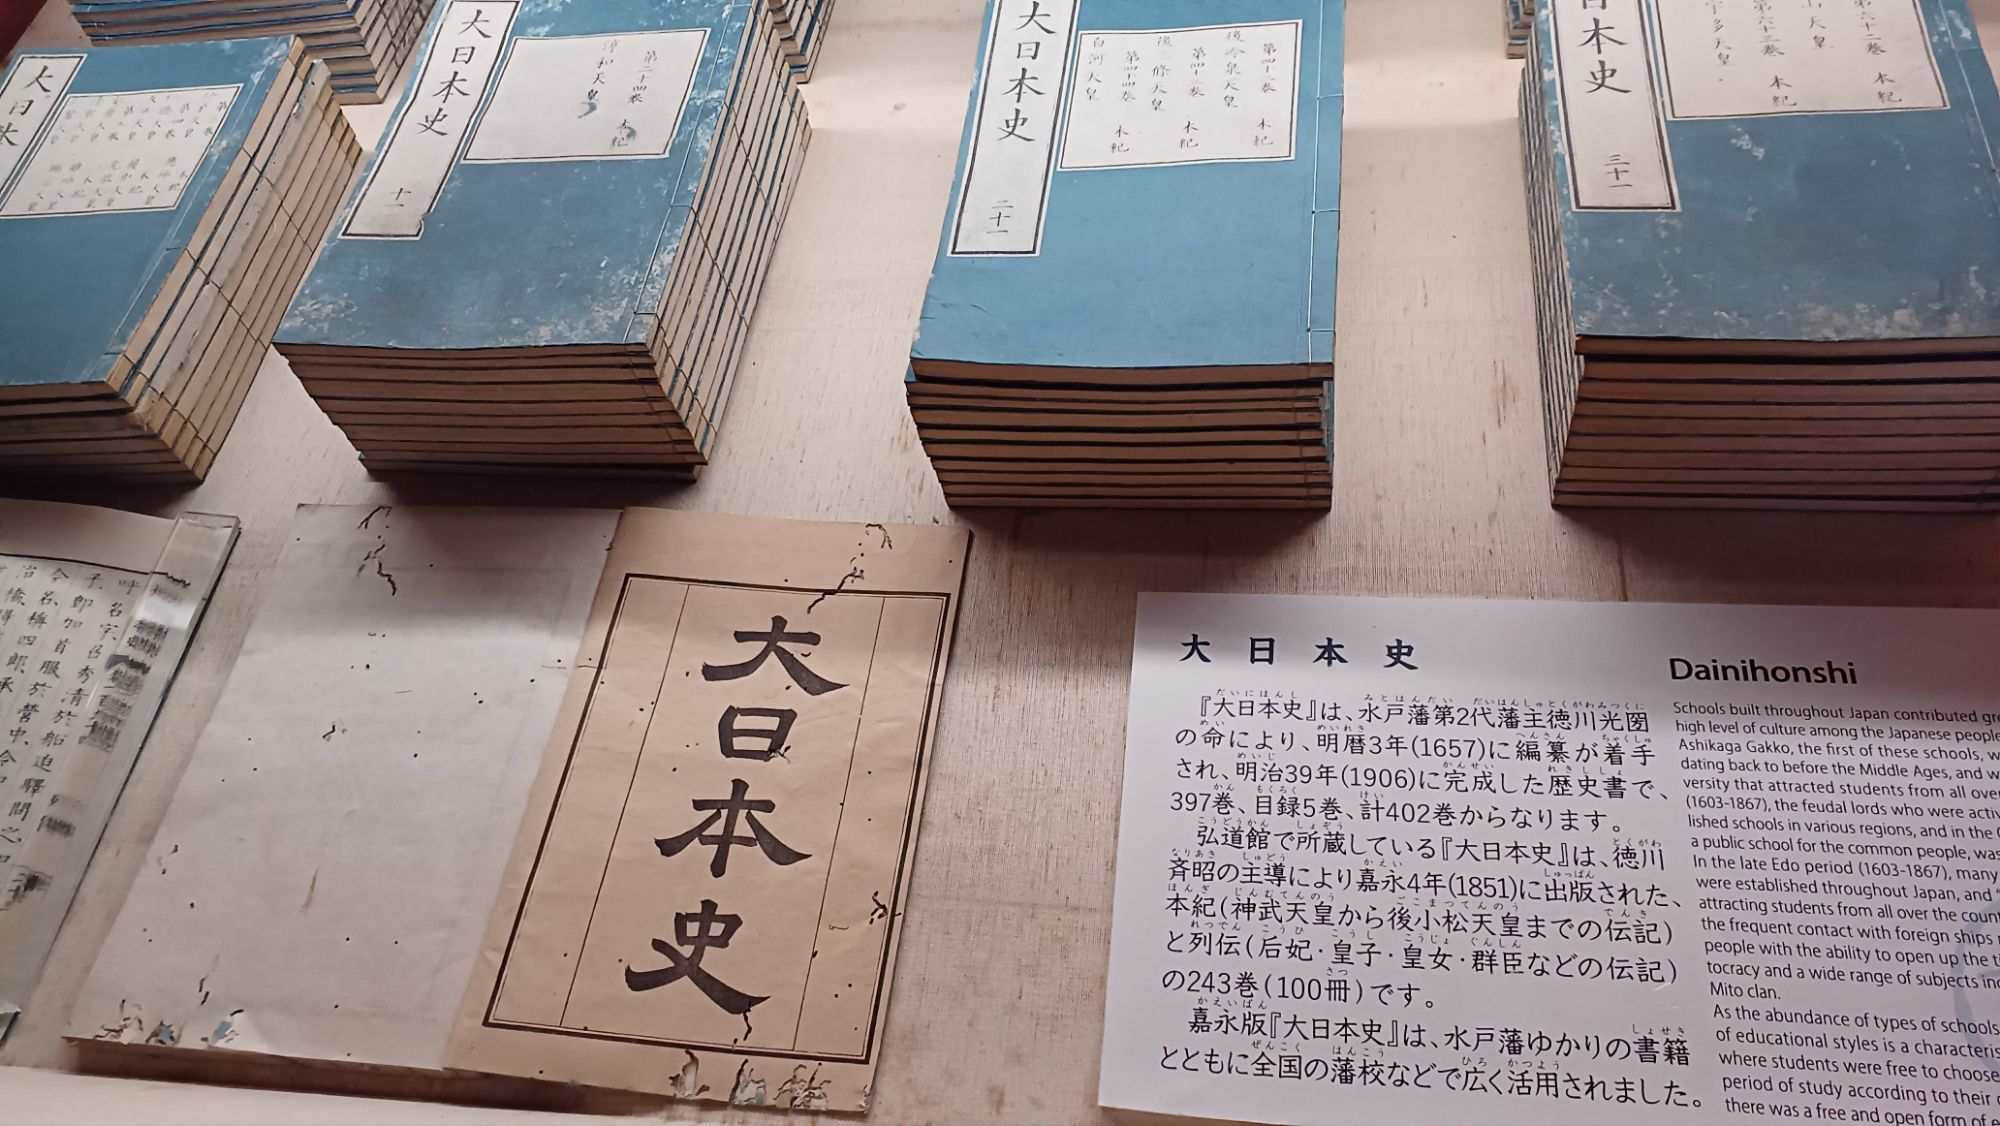 大日本
大日本史
十一
第二十四巻 本紀
淳和天皇
大日本史
二十一
第四十二巻 本紀
後冷泉天皇
第四十三巻 本紀
後三條天皇
第四十四巻 本紀
白河天皇
日本史
三十一
第六十二巻 本紀
山天皇
第六十三巻 本紀
宇多天皇
呼名字召秀清於
子卸加首服於船迫驛間之
今名稱四郎承營中令
大日本史
大日本史
『大日本史』は、水戸藩第2代藩主徳川光圀
の命により、明暦3年(1657)に編纂が着手
され、明治39年(1906)に完成した歴史書で、
397巻、目録5巻、計402巻からなります。
弘道館で所蔵している『大日本史』は、徳川
斉昭の主導により嘉永4年(1851)に出版された、
本紀(神武天皇から後小松天皇までの伝記)
と列伝(后妃・皇子・皇女・群臣などの伝記)
の243巻(100冊)です。
嘉永版『大日本史』は、水戸藩ゆかりの書籍
とともに全国の藩校などで広く活用されました。
Dainihonshi
Schools built throughout Japan contributed gre
high level of culture among the Japanese people
Ashikaga Gakko, the first of these schools, w
dating back to before the Middle Ages, and w
versity that attracted students from all over
(1603-1867), the feudal lords who were activ
lished schools in various regions, and in the
a public school for the common people, was
In the late Edo period (1603-1867), many
were established throughout Japan, and "
attracting students from all over the coun
the frequent contact with foreign ships
people with the ability to open up the t
tocracy and a wide range of subjects inc
Mito clan.
As the abundance of types of schools
of educational styles is a characteris
where students were free to choose
period of study according to their
there was a free and open form of e